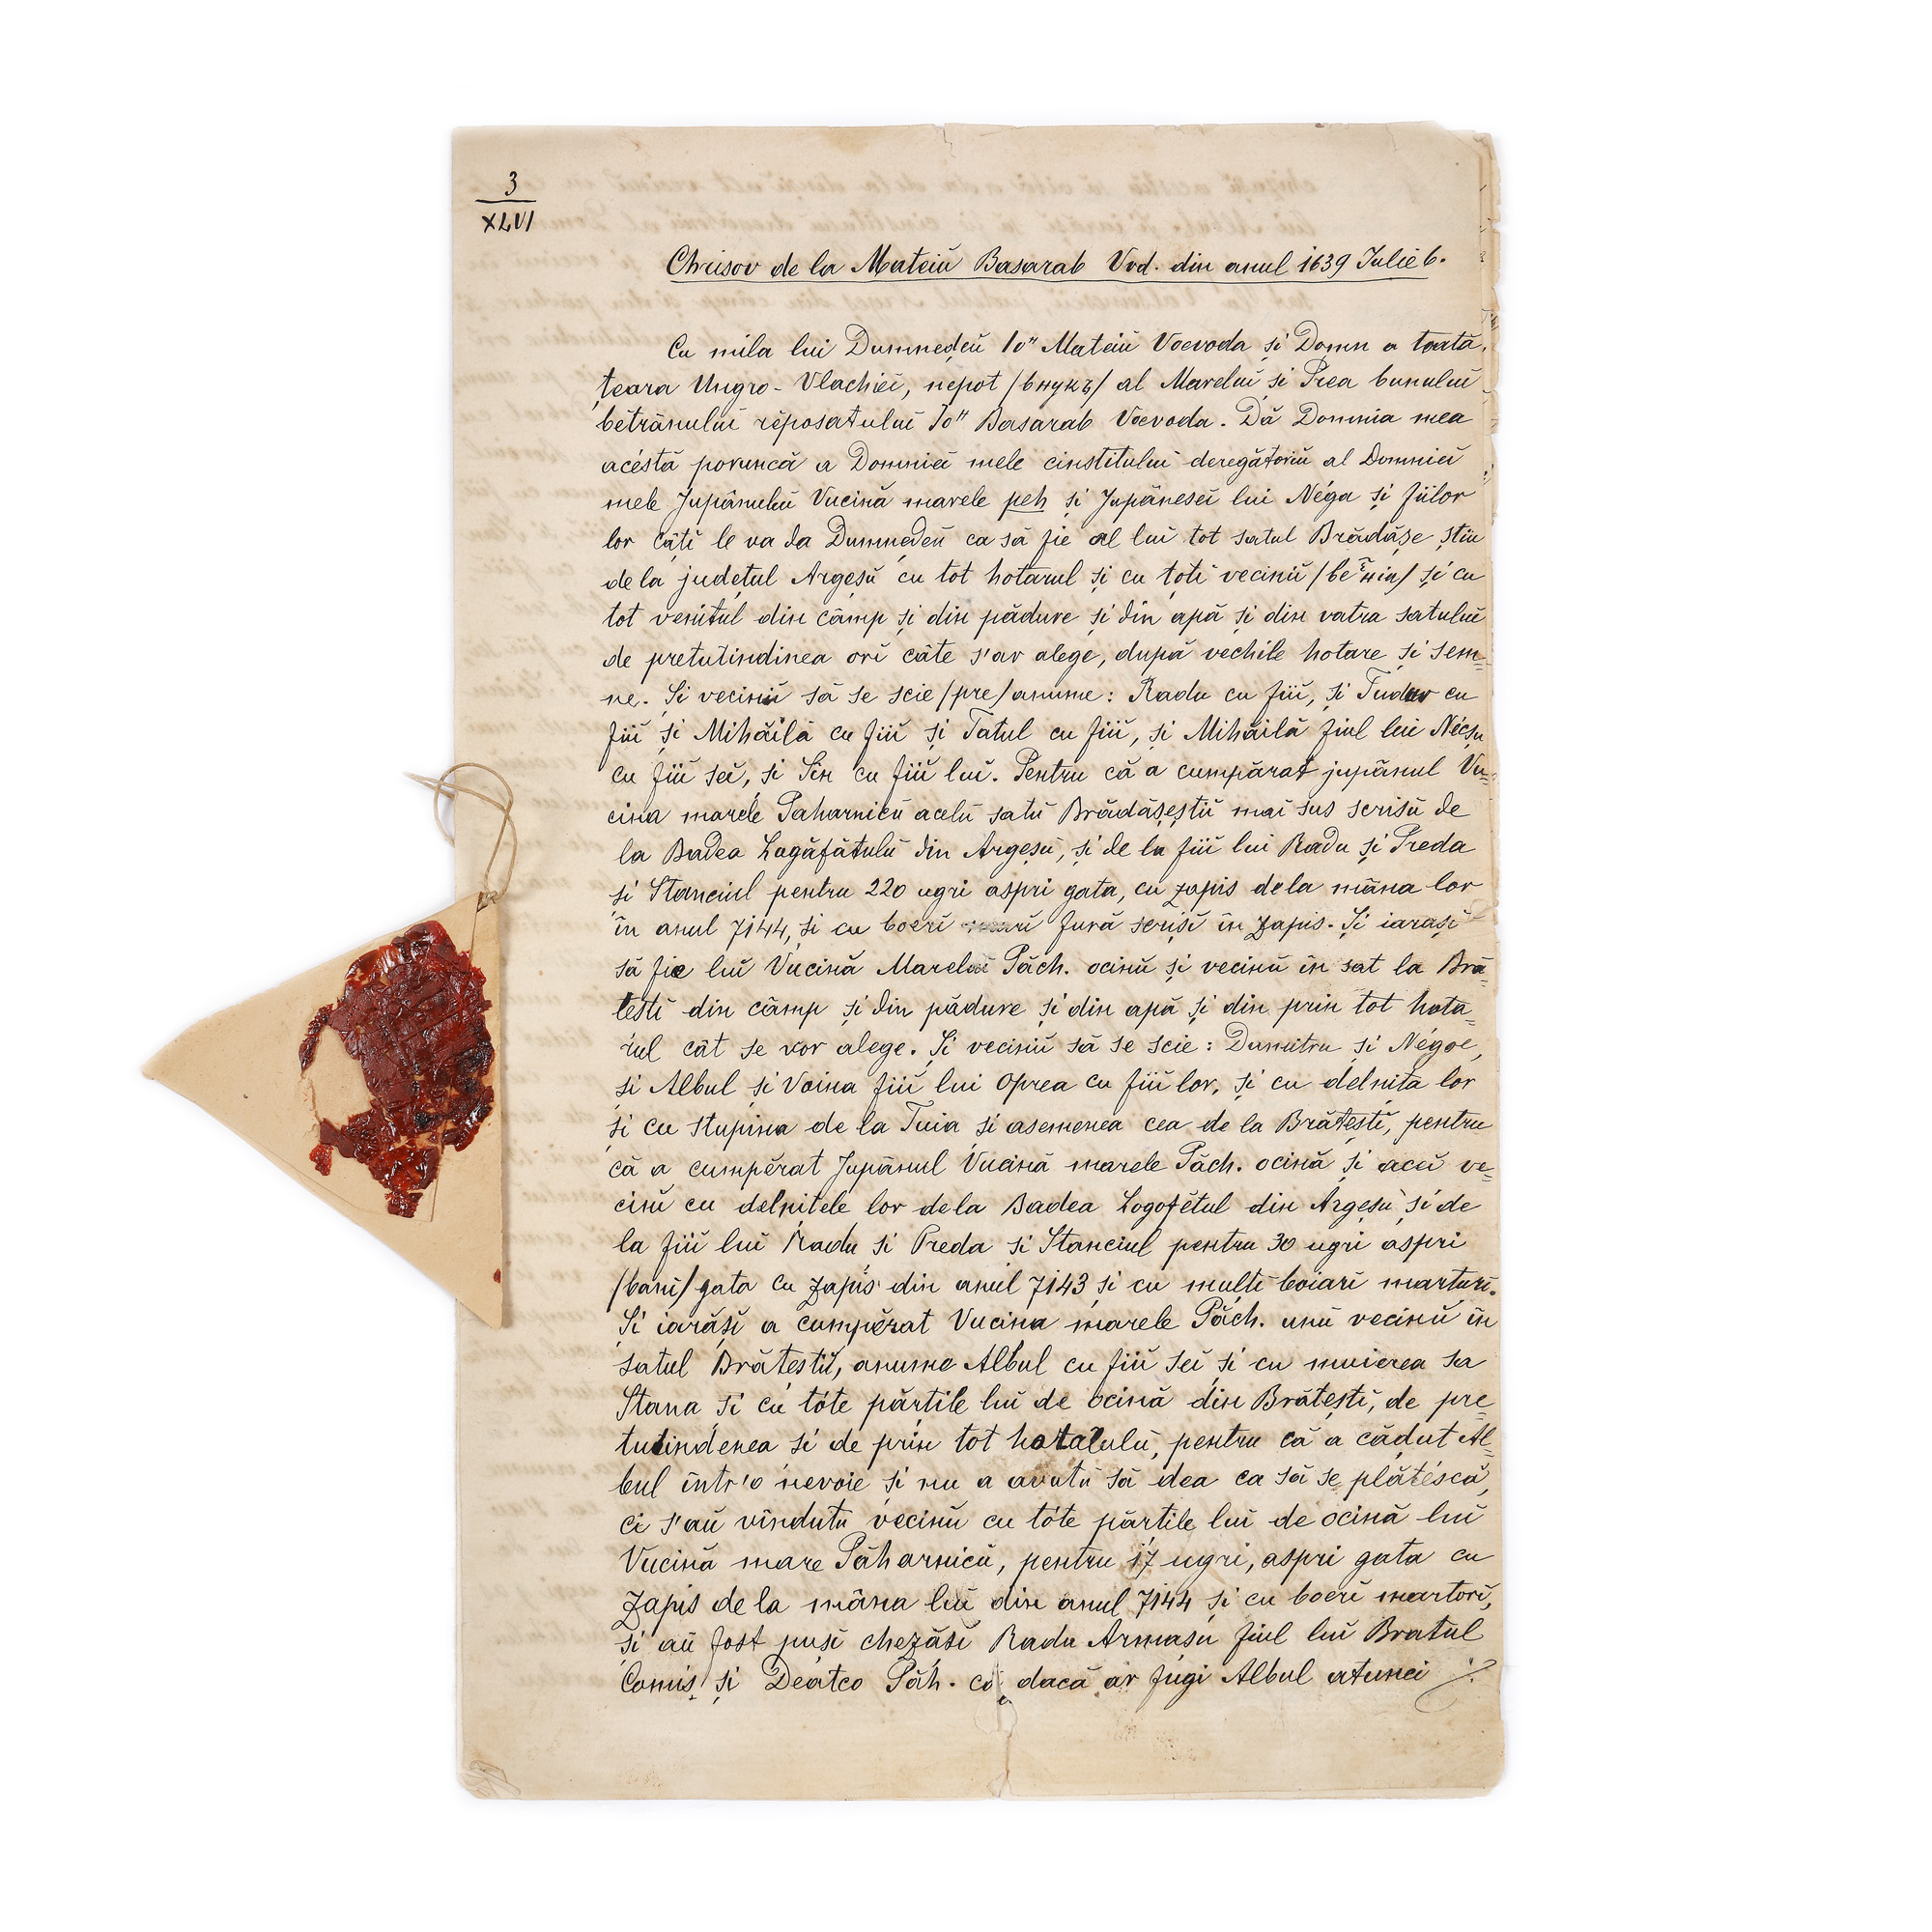 3
XLVI
Chrisov de la Mateiu Basarab Vvd. din anul 1639 Iulie 6.
Cu mila lui Dumneḑeŭ Io" Mateiŭ Voevoda și Domn a toată
țeara Ungro-Vlachieĭ, nepot /внукъ/ al Mareluĭ și Prea bunuluĭ
bĕtrânuluĭ rĕposatuluĭ Io" Basarab Voevoda. Dă Domnia mea
acéstă poruncă a Domnieĭ mele cinstituluĭ deregătoriŭ al Domnieĭ
mele Jupânuluĭ Vucină marele peh și Jupâneseĭ lui Néga și fiilor
lor câțĭ le va da Dumneḑeŭ ca să fie al luĭ tot satul Brădășeștiĭ
de la județul Argeșŭ cu tot hotarul și cu toțĭ veciniĭ și cu
tot venitul din câmp și din pădure și din apă și din vatra satuluĭ
de pretutindinea orĭ câte s'ar alege, după vechile hotare și sem=
ne. Și veciniĭ să se scie /pre/ anume: Radu cu fiĭ, și Tudor cu
fiĭ și Mihăilă cu fiĭ și Tatul cu fiĭ, și Mihăilă fiul lui Nécșu
cu fiĭ seĭ, și Sin cu fiĭ luĭ. Pentru că a cumpărat jupânul Vu=
cina marele Paharnicŭ acelŭ satŭ Brădășeștiĭ mai sus scrisŭ de
la Badea Logăfătulŭ din Argeșŭ, și de la fiĭ lui Radu și Preda
și Stanciul pentru 220 ugri aspri gata, cu zapis de la mâna lor
în anul 7144, și cu boerĭ fură scrisĭ în zapis. Și iarașĭ
să fie luĭ Vucină Mareluĭ Păch. ocinŭ și vecinŭ în sat la Bră=
teștĭ din câmp și din pădure și din apă și din prin tot hota=
rul cât se vor alege. Și veciniĭ să se scie: Dumitru și Négoe,
și Albul și Voina fiĭ lui Oprea cu fiĭ lor, și cu délnița lor
și cu stupina de la Tuia și asemenea cea de la Brăteștĭ, pentru
că a cumpĕrat Jupânul Vucină marele Păch. ocină și aceĭ ve=
cinĭ cu delnițele lor de la Badea Logofĕtul din Argeșŭ și de
la fiĭ luĭ Radu și Preda și Stanciul pentru 30 ugri aspri
/banĭ/ gata cu zapis din anul 7143 și cu mulțĭ boiarĭ marturĭ.
Și iarășĭ a cumpĕrat Vucina marele Păch. unŭ vecinŭ în
satul Brăteștiĭ, anume Albul cu fiĭ seĭ și cu muierea sa
Stana și cu tóte părțile luĭ de ocină din Brăteștĭ, de pre=
tutindenea și de prin tot hotarulŭ, pentru că a căḑut Al=
bul într'o nevoie și nu a avutŭ să dea ca să se plătéscă,
ci s'aŭ vîndutŭ vecinŭ cu tóte părțile luĭ de ocină luĭ
Vucină mare Păharnicŭ, pentru 17 ugri, aspri gata cu
Zapis de la mâna luĭ din anul 7144 și cu boerĭ martorĭ,
și aŭ fost pușĭ chezășĭ Radu Armașu fiul luĭ Bratul
Comiș și Deatco Păh. că dacă ar fugi Albul atunci ·/·